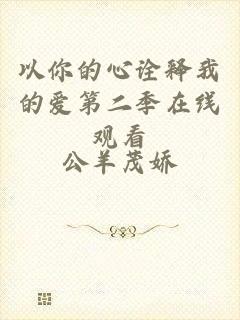 以你的心诠释我
的爱第二季在线
观看
公羊茂娇